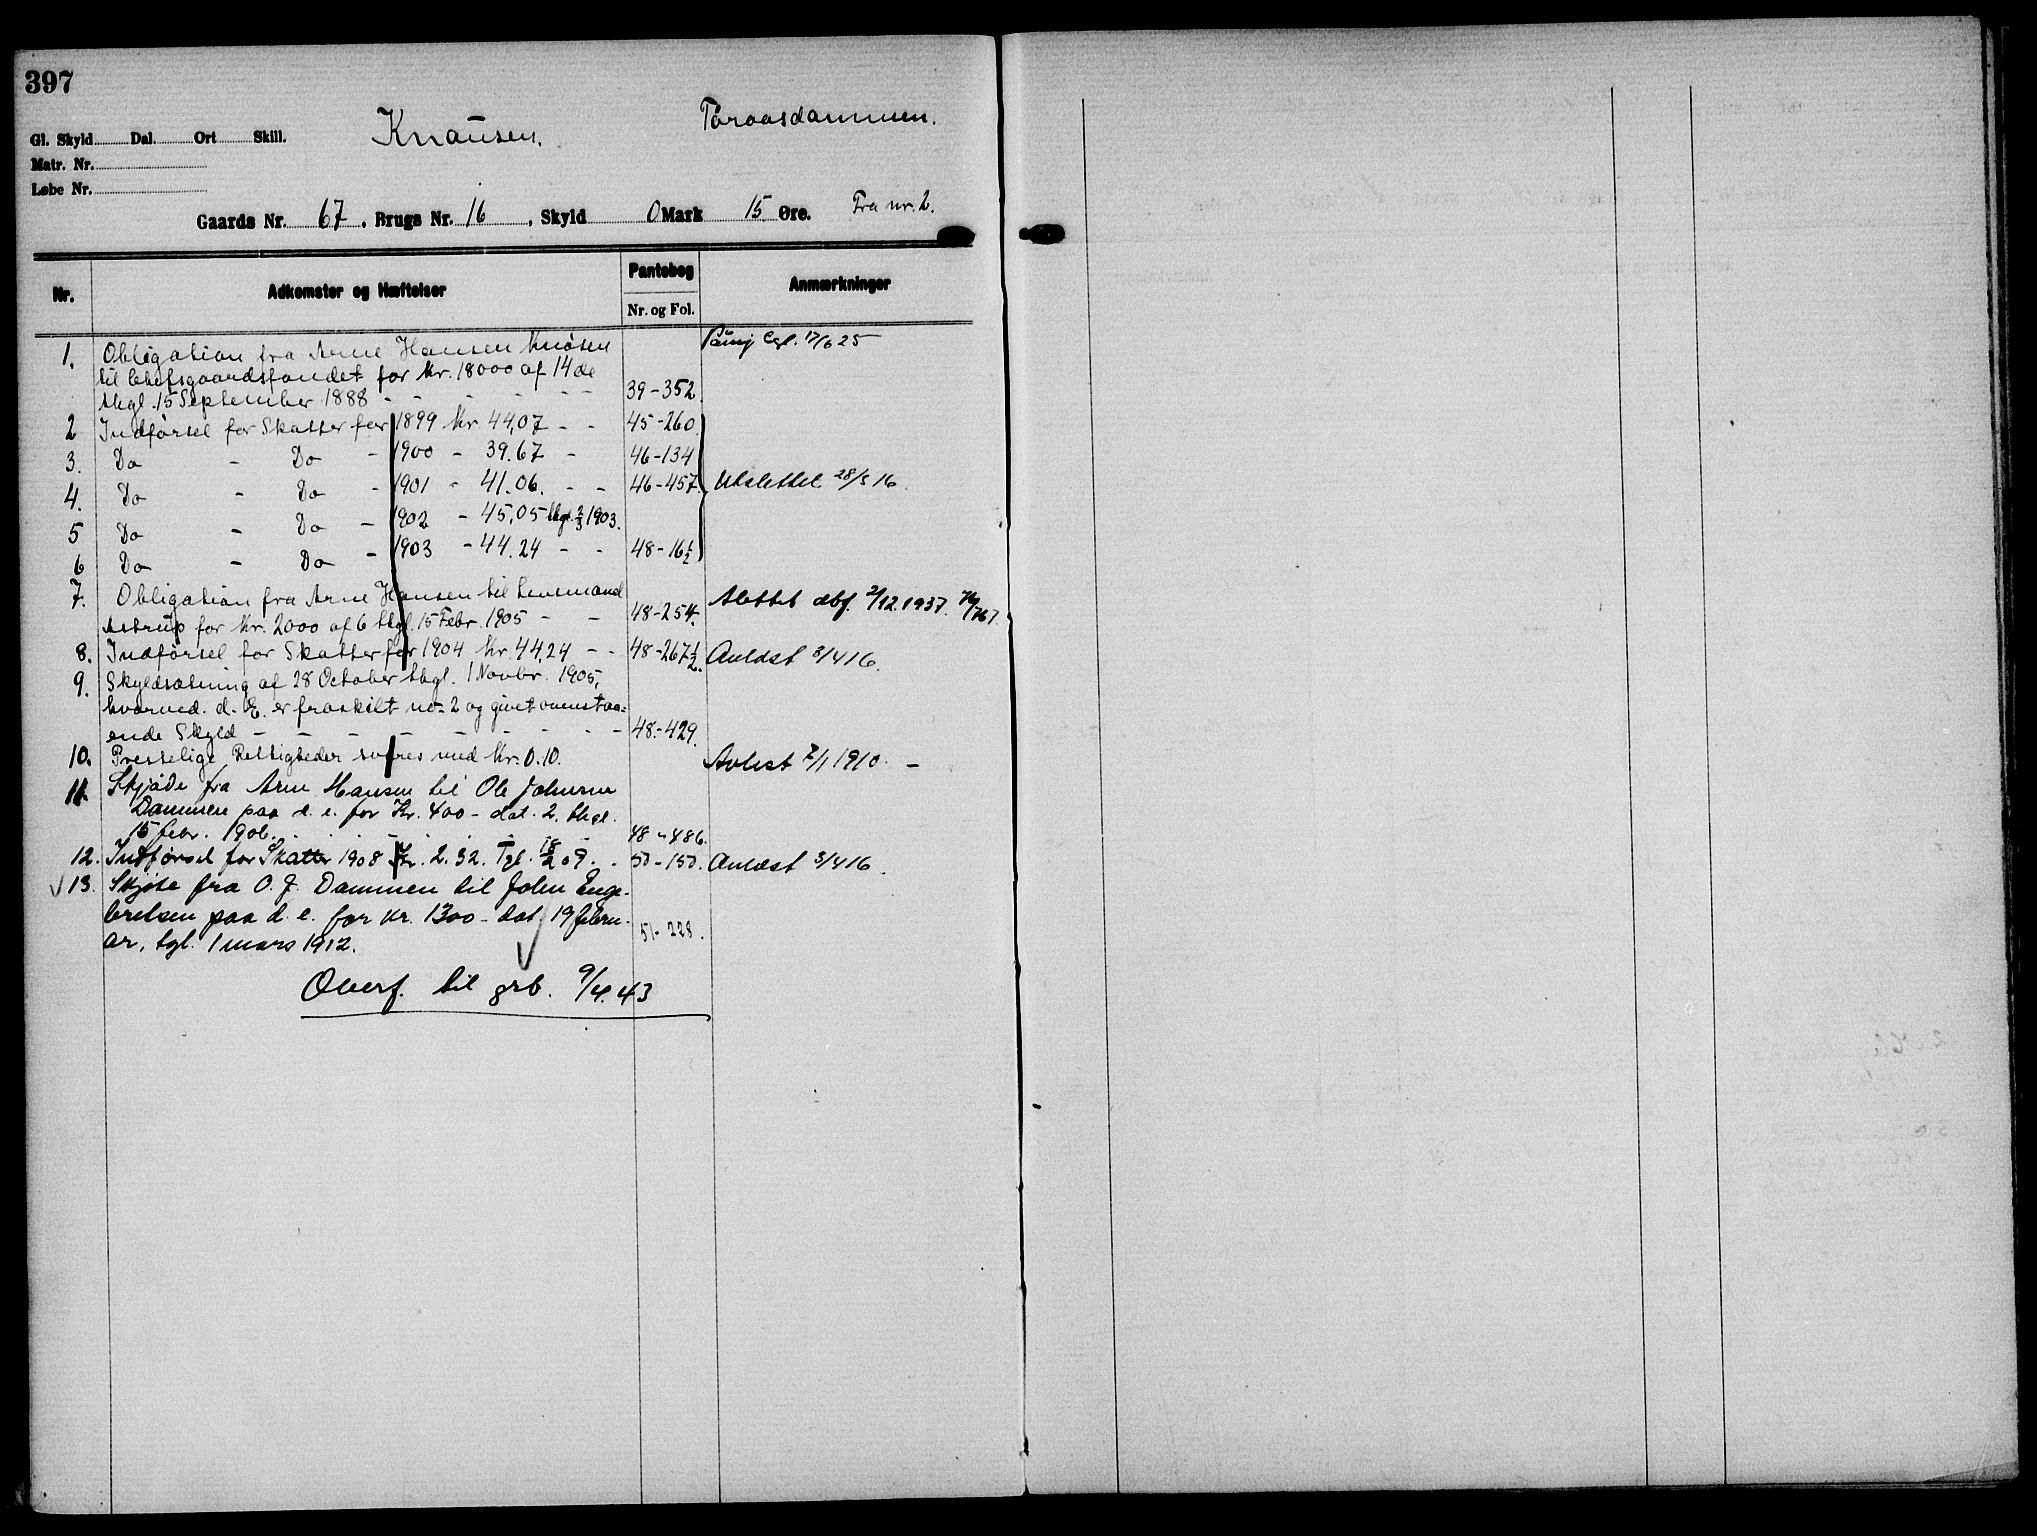 397
Gl. Skyld Dal. Ort Skill. Knausen. Toraasdammen.
Matr. Nr.
Løbe Nr.
Gaards Nr. 67, Brugs Nr. 16, Skyld 0 Mark 15 Øre. Fra nr. 2.
Nr. Adkomster og Hæftelser Pantebog Anmærkninger
Nr. og Fol.
1. Obligation fra Arne Hansen Knøsen 17/6 25
til fondet for Kr. 18000 af 14de
thgl. 15 September 1888 - - - - - - 39-352.
2 Indførsel for Skatter for 1899 Kr 44,07 - - 45-260
3. Do - Do - 1900 - 39.67 - 46-134
4. Do - Do - 1901 - 41.06. - - 46-457. Utslettet 28/5 16.
5 Do - Do - 1902 - 45,05 thgl. 2/3 1903.
6 Do - Do - 1903 - 44.24 - - 48-16½
7. Obligation fra Arne Hansen til Lensmand Slettet dbf. 2/12 1937.
Astrup for Kr. 2000 af 6 thgl. 15 Febr. 1905 - - 48-254.
8. Indførsel for Skatter for 1904 Kr. 44,24 - - 48-267½. Avlöst 3/4 16.
9. Skyldsætning af 28 October thgl. 1 Novbr. 1905,
hvorved d. E. er fraskilt no- 2 og givet ovenstaa=
ende Skyld - - - - - - - - - 48-429.
10. Presselige Rettigheder svares med Kr. 0.10. Avløst 7/1 1910. -
11. Skjøde fra Arne Hansen til Ole Johnsen
Dammen paa d. e. for Kr. 400 - dat. 2. thgl.
15 febr. 1906. 48-486.
12. Indførsel for Skatter 1908 Kr. 2.32. Tgl. 18/2 09. - 50-150. Avløst 3/4 16.
13. Skjøte fra O. J. Dammen til John Enge-
bretsen paa d. e. for kr. 1300 - dat. 19 febru-
ar, tgl. 1 mars 1912. 51-228.
Overf. til grb. 9/4.43